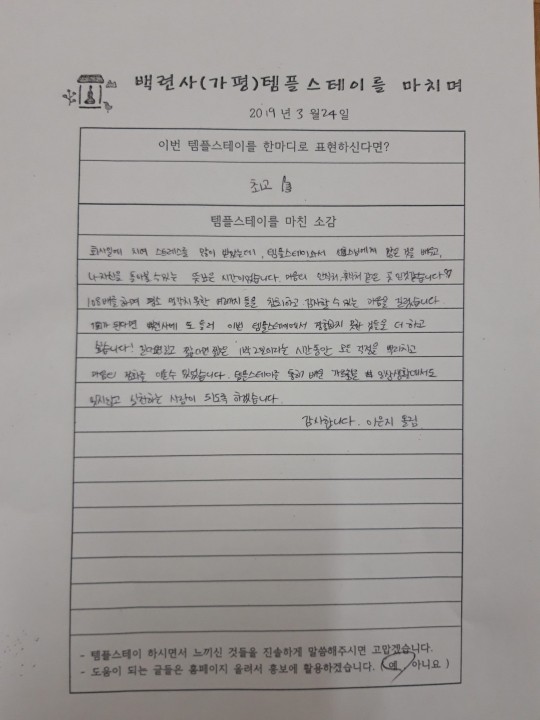 백련사(가평)템플스테이를 마치며
2019년 3월24일
이번 템플스테이를 한마디로 표현하신다면?
최고
템플스테이를 마친 소감
회사일에 치여 스트레스를 많이 받았는데, 템플스테이와서 많은 것을 배우고,
나 자신을 돌아볼 수 있는 뜻깊은 시간이었습니다. 마음의 안식처, 휴식처 같은 곳 인것같습니다
108배를 하며 평소 생각치 못한 여러가지 들을 참회하고 감사할 수 있는 마음을 길렀습니다
기회가 된다면 백련사에 또 들러 이번 템플스테이에서 경험하지 못한 것들을 더 하고
싶습니다! 길다면길고 짧다면 짧은 1박2일이라는 시간동안 모든 걱정을 뿌리치고
마음의 평화를 이룰 수 있었습니다. 템플스테이를 통해 배운 가르침을 일상생활에서도
잊지않고 실천하는 사람이 되도록 하겠습니다.
감사합니다. 이은지 올림
- 템플스테이 하시면서 느끼신 것들을 진솔하게 말씀해주시면 고맙겠습니다.
- 도움이 되는 글들은 홈페이지 올려서 홍보에 활용하겠습니다. (예, 아니요 )